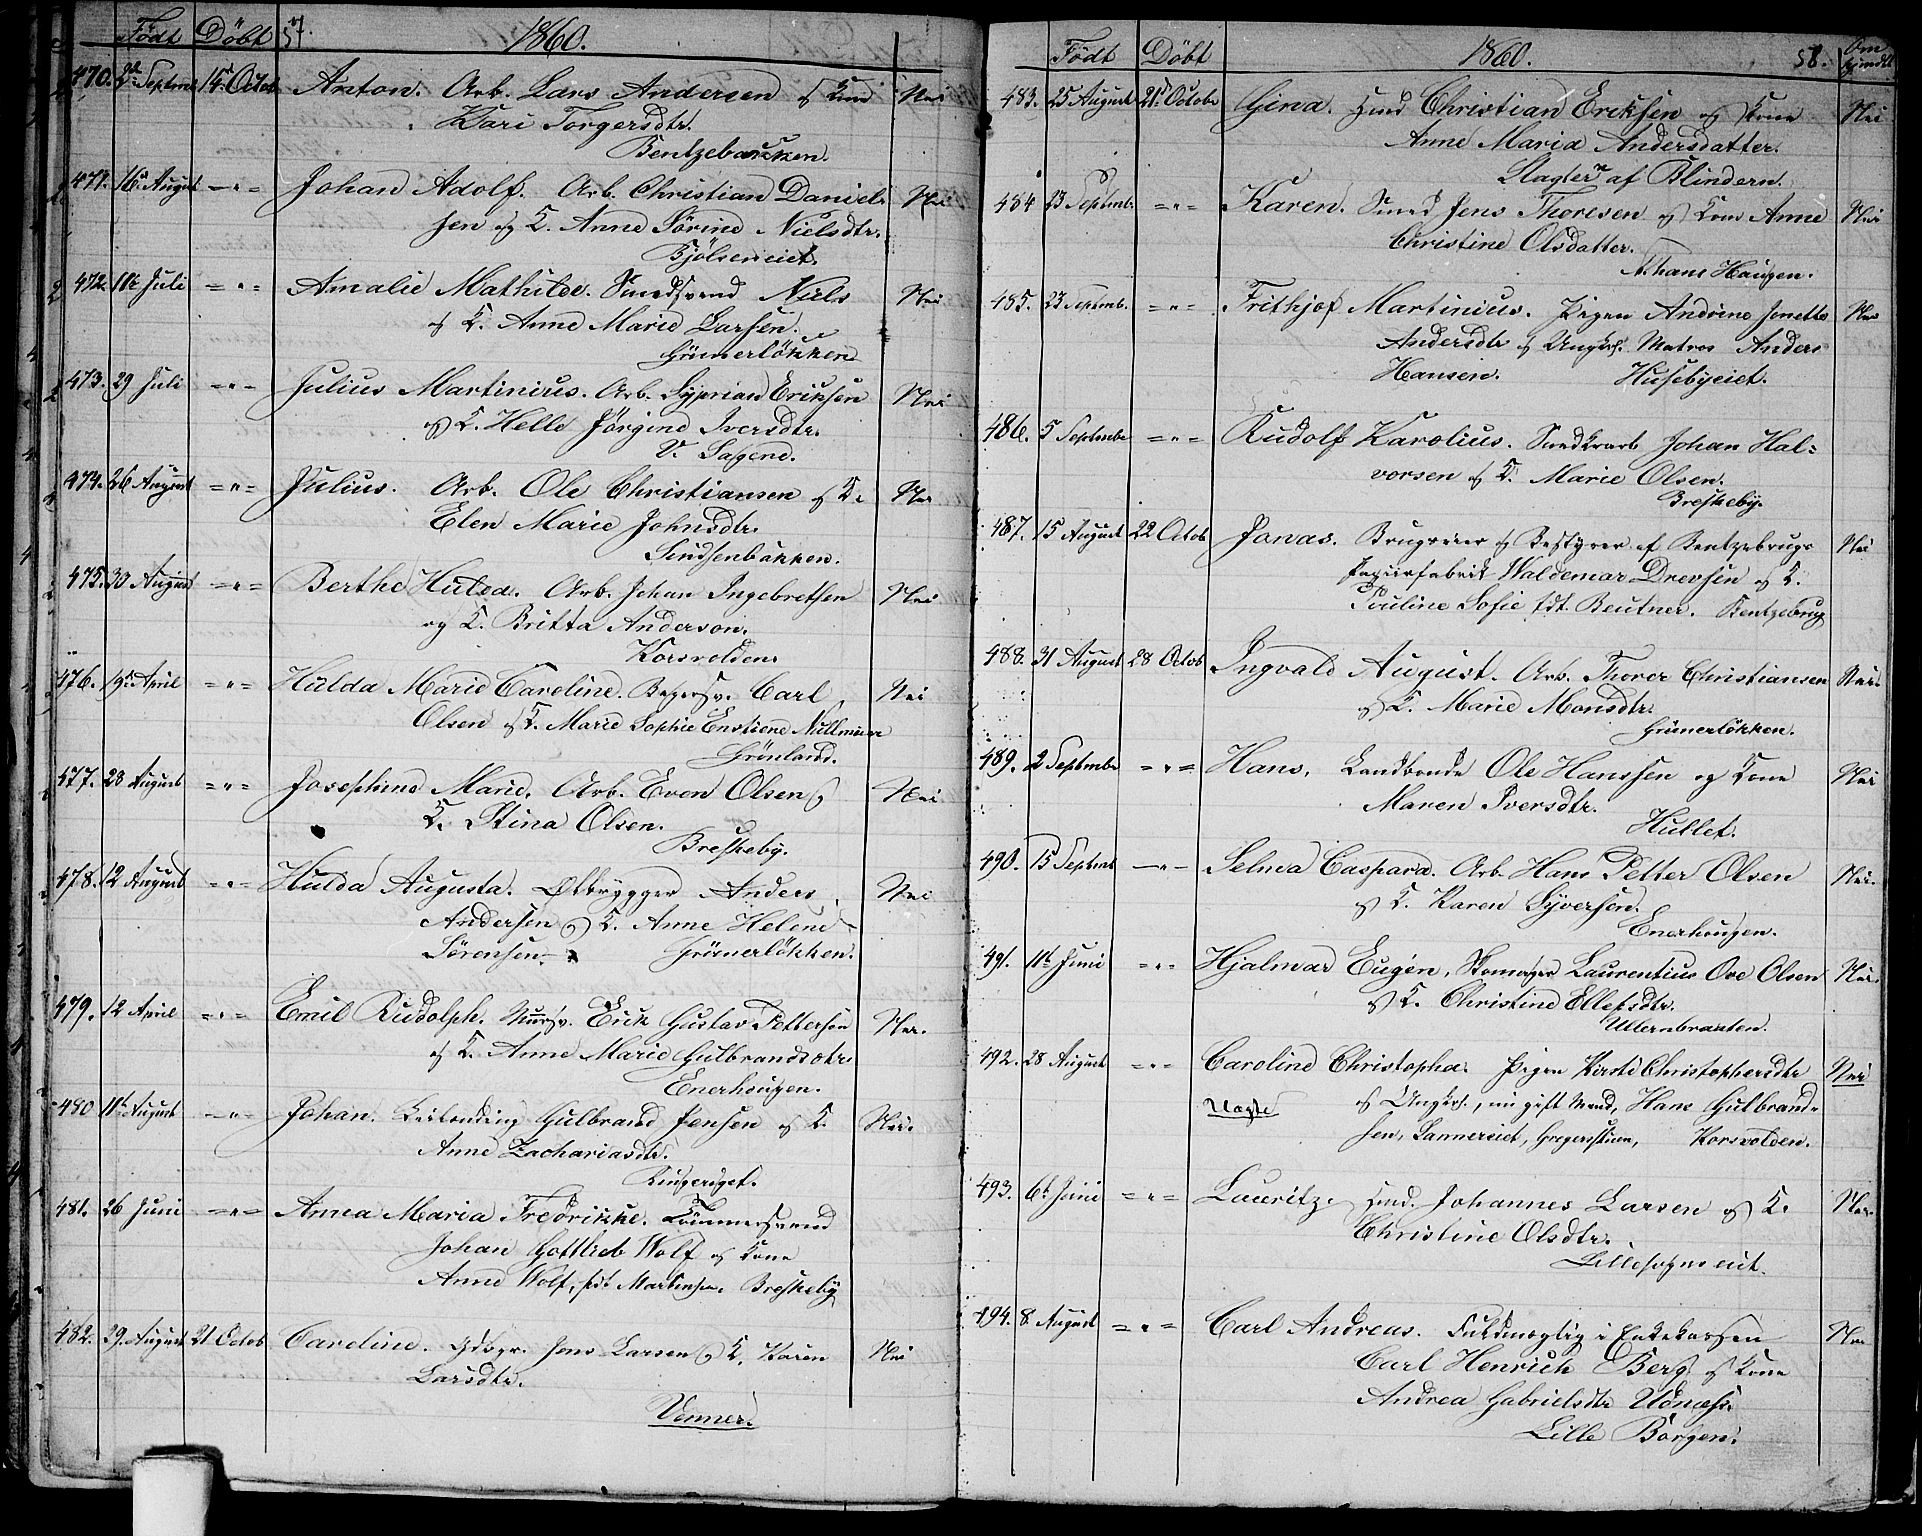 Født Döbt 57. 1860.
470. 2de Septem 14d Octob Anton. Arb. Lars Andersen og Kone Nei
Kari Torgersdtr.
Bentzebakken.
471. 16d August -"- Johan Adolf. Arb. Christian Daniel- Nei
sen og K. Anne Sørine Nielsdtr.
Bjölseneiet.
472. 10de Juli ="= Amalie Mathilde. Smedsvend Niels Nei
og K. Anne Marie Larsen.
Grünerløkken
473. 29 Juli -"- Julius Martinius. Arb. Syprian Eriksen Nei
og K. Helle Jörgine Iversdtr.
V. Sagene.
474. 26 August ="= Julius. Arb. Ole Christiansen og K. Nei
Elen Marie Johnsdtr.
Sindsenbakken.
475. 30 August ="= Berthe Hulda. Arb. Johan Ingebretsen Nei
og K. Britta Anderson.
Korsvolden
476. 19de April ="= Hulda Marie Caroline. Bagersv. Carl Nei
Olsen og K. Marie Sophie
Grönland.
477. 28 August ="= Josephine Marie. Arb. Even Olsen og Nei
K. Stina Olsen.
Briskeby.
478. 12 August ="= Hulda Augusta. Ølbrygger Anders Nei
Andersen og K. Anne Helene
Sörensen. Grünerløkken.
479. 12 April ="= Emil Rudolph. Mursv. Erik Gustav Petterson Nei.
og K. Anne Marie Gulbrandsdtr.
Enerhougen.
480 11te August -"- Johan. Gulbrand Jensen og K. Nei.
Anne Zachariasdtr.
Ringeriget.
481. 26 Juni ="= Anna Maria Fredrikke. Tömmersvend
Johan Gottlieb Wolf og Kone
Anne Wolf, fdt Martinsen. Briskeby
482. 29. August 21. Octob Caroline. Gdbgr. Jens Larsen og K. Karen Nei
Larsdtr.
Venner.
Födt Döbt 1860. 58. Om
483. 25 August 21d Octobr Gina. Huusmd Christian Eriksen og Kone Nei
Anne Maria Andersdatter.
Slagteren af Blindern.
484 23 Septemb. ="= Karen. Smed Jens Thoresen og Kone Anne Nei
Christine Olsdatter.
Haugen.
485. 23 Septemb. ="= Frithjof Martinius. Pigen Andrine Jonette Nei
Andersdtr og Ungkrl. Matros Anders
Hansen. Husebyeiet.
486. 5 Septembr ="= Rudolf Karolius. Johan Hal-
vorsen og K. Marie Olsen.
Briskeby.
487. 15 August 22 Octob Jonas. Brugseier og Bestyrer af Bentzebrugs Nei
Papirfabrik Waldemar Drevsen og K.
Pouline Sofie fdt. Beutner. Bentzebrug
488. 31 August 28 Octob Ingvald August. Arb. Thorer Christiansen Nei.
og K. Marie Monsdtr.
Grünerløkken.
489. 2 Septembr ="= Hans, Landbonde Ole Hanssen og Kone Nei
Maren Iversdtr.
Hullet.
490. 15 Septemb -"- Selma Caspara. Arb. Hans Petter Olsen Nei.
og K. Karen Syversen.
Enerhougen.
491. 11te Juni ="= Hjalmar Eugén. Skomager Laurentius Ove Olsen Nei.
og K. Christine Ellefsdtr.
Ullernbraaten.
492. 28 August ="= Caroline Christopha. Pigen Kirsti Christophersdtr Nei
Uægte og Ungkrl., nu gift Mand, Hans Gulbrand-
sen, Sannereiet, Korsvolden.
493. 6te Juni ="= Lauritz. Huusmd. Johannes Larsen og K. Nei.
Christine Olsdtr.
Lillesogneeiet.
494. 8 August ="= Carl Andreas. Fuldmægtig i Enkekassen Nei
Carl Henrich Berg og Kone
Andrea Gabrielsdtr Udnæss.
Lille Borgen.